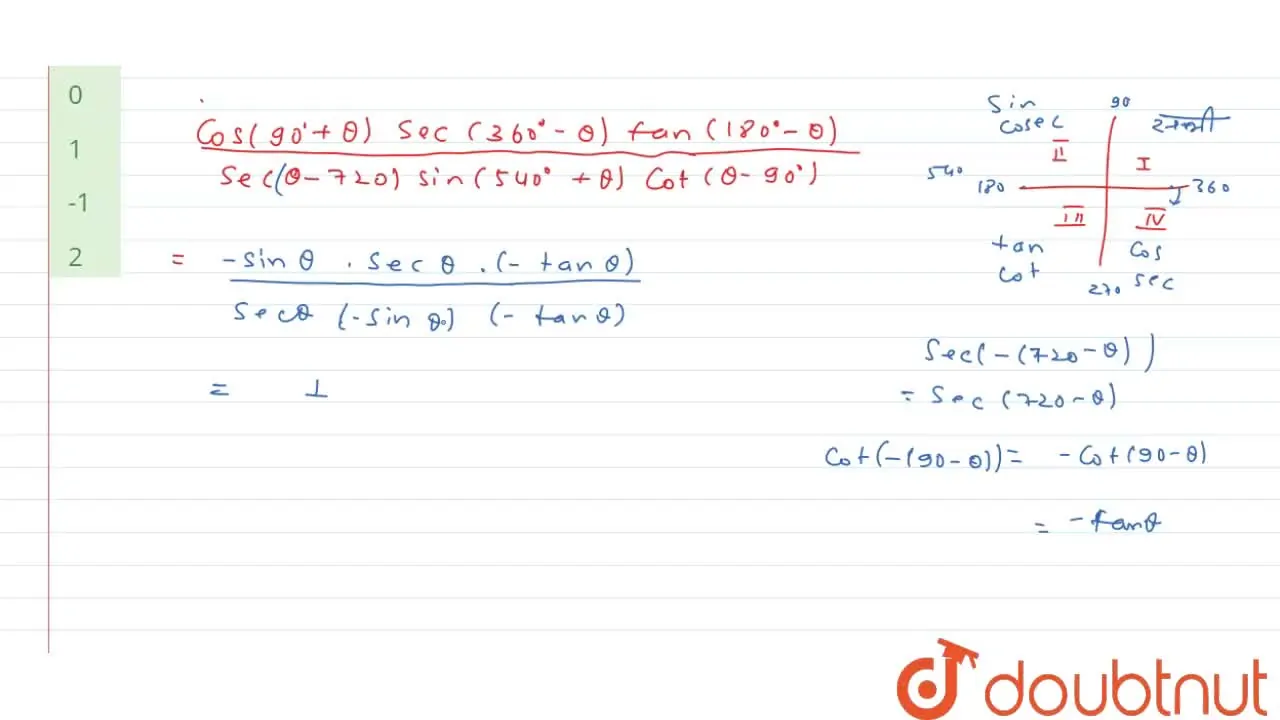 0
1
-1
2
Cos(90°+θ) Sec(360°-θ) tan(180°-θ)
Sec(θ-720) sin(540°+θ) Cot(θ-90°)
= -sin θ . sec θ . (- tan θ)
secθ (-sin θ.) (- tanθ)
= 1
Sin
Cosec
90
II
I
540
180
360
III
IV
tan
Cot
Cos
Sec
270
Sec(-(720-θ))
= Sec (720-θ)
Cot(-(90-θ)) = -Cot(90-θ)
= -tanθ
doubtnut